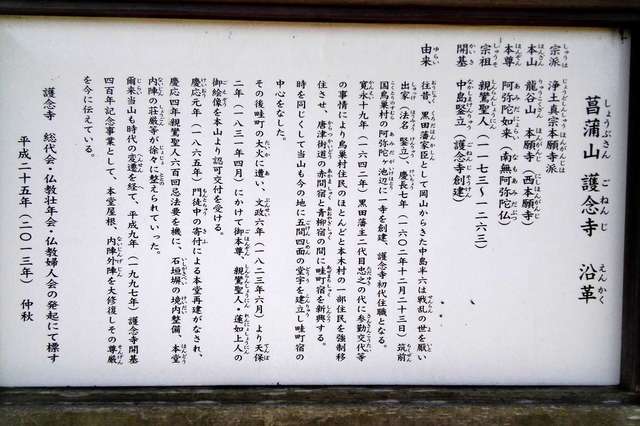 菖蒲山 護念寺 沿革
宗派 浄土真宗本願寺派
本山 龍谷山 本願寺（西本願寺）
本尊 阿弥陀如来（南無阿弥陀仏）
宗祖 親鸞聖人（一一七三～一二六三）
開基 中島釜立（護念寺創建）
由来 往昔、黒田藩家臣として岡山からきた中島半六は戦乱の世を厭い
出家（法名 釜立）慶長七年（一六〇二年十二月二十三日）筑前
国鳥巣村の阿弥陀ヶ池辺に一寺を創建、護念寺初代住職となる。
寛永十九年（一六四二年）黒田藩主二代目忠之の代に参勤交代等
の事情により鳥巣村住民のほとんどと本木村の一部住民を強制移
住させ、唐津街道の赤間宿と青柳宿の間に畦町宿を新興する。
時を同じくして当山も今の地に五間四面の堂宇を建立し畦町宿の
中心をなした。
その後畦町の大火に遭い、文政六年（一八二三年六月）より天保
二年（一八三一年四月）にかけて御本尊、親鸞聖人・蓮如上人の
御絵像を本山より認可交付を受ける。
慶応元年（一八六五年）門徒中の寄付による本堂再建がなされ、
慶応四年親鸞聖人六百回忌法要を機に、石垣塀の境内整備、本堂
内陣の荘厳等が徐々に整えられていった。
爾来当山も時代の変遷を経て、平成九年（一九九七年）護念寺開基
四百年記念事業として、本堂屋根、内陣外陣を大修復しその尊厳
を今に伝えている。
護念寺 総代会・仏教壮年会・仏教婦人会の発起にて標す
平成二十五年（二〇一三年） 仲秋